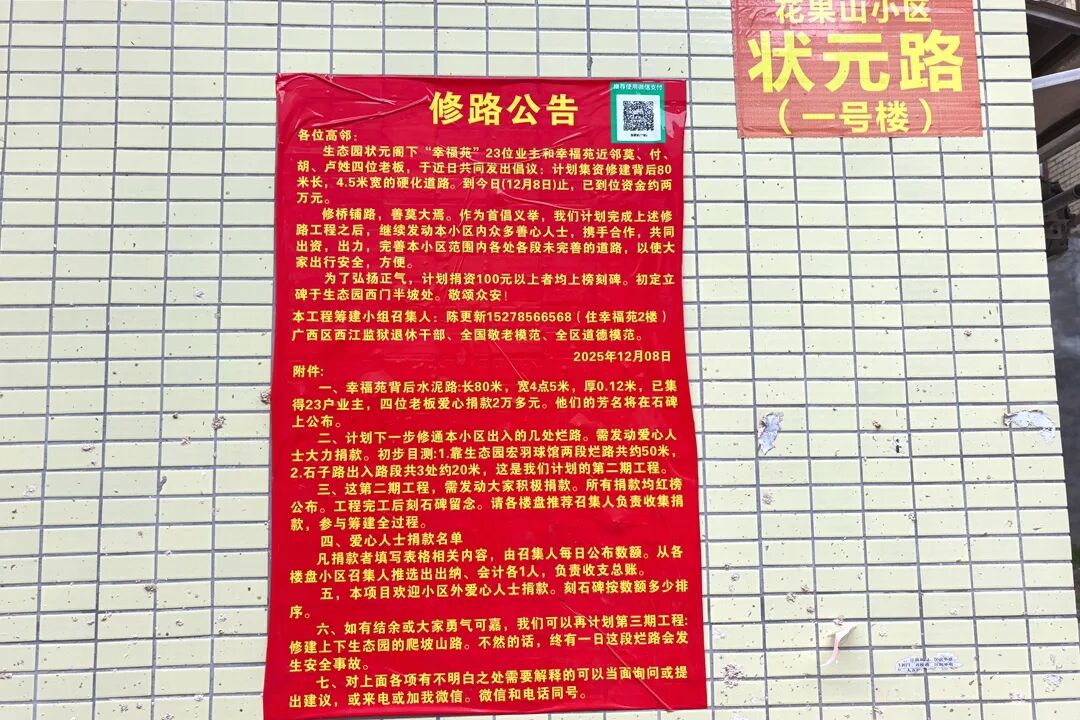 花果山小区
状元路
（一号楼）
推荐使用微信支付
修路公告
各位高邻：
生态园状元阁下“幸福苑”23位业主和幸福苑近邻莫、付、
胡、卢姓四位老板，于近日共同发出倡议：计划集资修建背后80
米长，4.5米宽的硬化道路。到今日(12月8日)止，已到位资金约两
万元。
修桥铺路，善莫大焉。作为首倡义举，我们计划完成上述修
路工程之后，继续发动本小区内众多善心人士，携手合作，共同
出资，出力，完善本小区范围内各处各段未完善的道路，以使大
家出行安全，方便。
为了弘扬正气，计划捐资100元以上者均上榜刻碑。初定立
碑于生态园西门半坡处。敬颂众安！
本工程筹建小组召集人：陈更新15278566568（住幸福苑2楼）
广西区西江监狱退休干部、全国敬老模范、全区道德模范。
2025年12月08日
附件：
一、幸福苑背后水泥路:长80米，宽4点5米，厚0.12米，已集
得23户业主，四位老板爱心捐款2万多元。他们的芳名将在石碑
上公布。
二、计划下一步修通本小区出入的几处烂路。需发动爱心人
士大力捐款。初步目测:1.靠生态园宏羽球馆两段烂路共约50米，
2.石子路出入路段共3处约20米，这是我们计划的第二期工程。
三、这第二期工程，需发动大家积极捐款。所有捐款均红榜
公布。工程完工后刻石碑留念。请各楼盘推荐召集人负责收集捐
款，参与筹建全过程。
四、爱心人士捐款名单
凡捐款者填写表格相关内容，由召集人每日公布数额。从各
楼盘小区召集人推选出出纳、会计各1人，负责收支总账。
五，本项目欢迎小区外爱心人士捐款。刻石碑按数额多少排
序。
六、如有结余或大家勇气可嘉，我们可以再计划第三期工程:
修建上下生态园的爬坡山路。不然的话，终有一日这段烂路会发
生安全事故。
七、对上面各项有不明白之处需要解释的可以当面询问或提
出建议，或来电或加我微信。微信和电话同号。